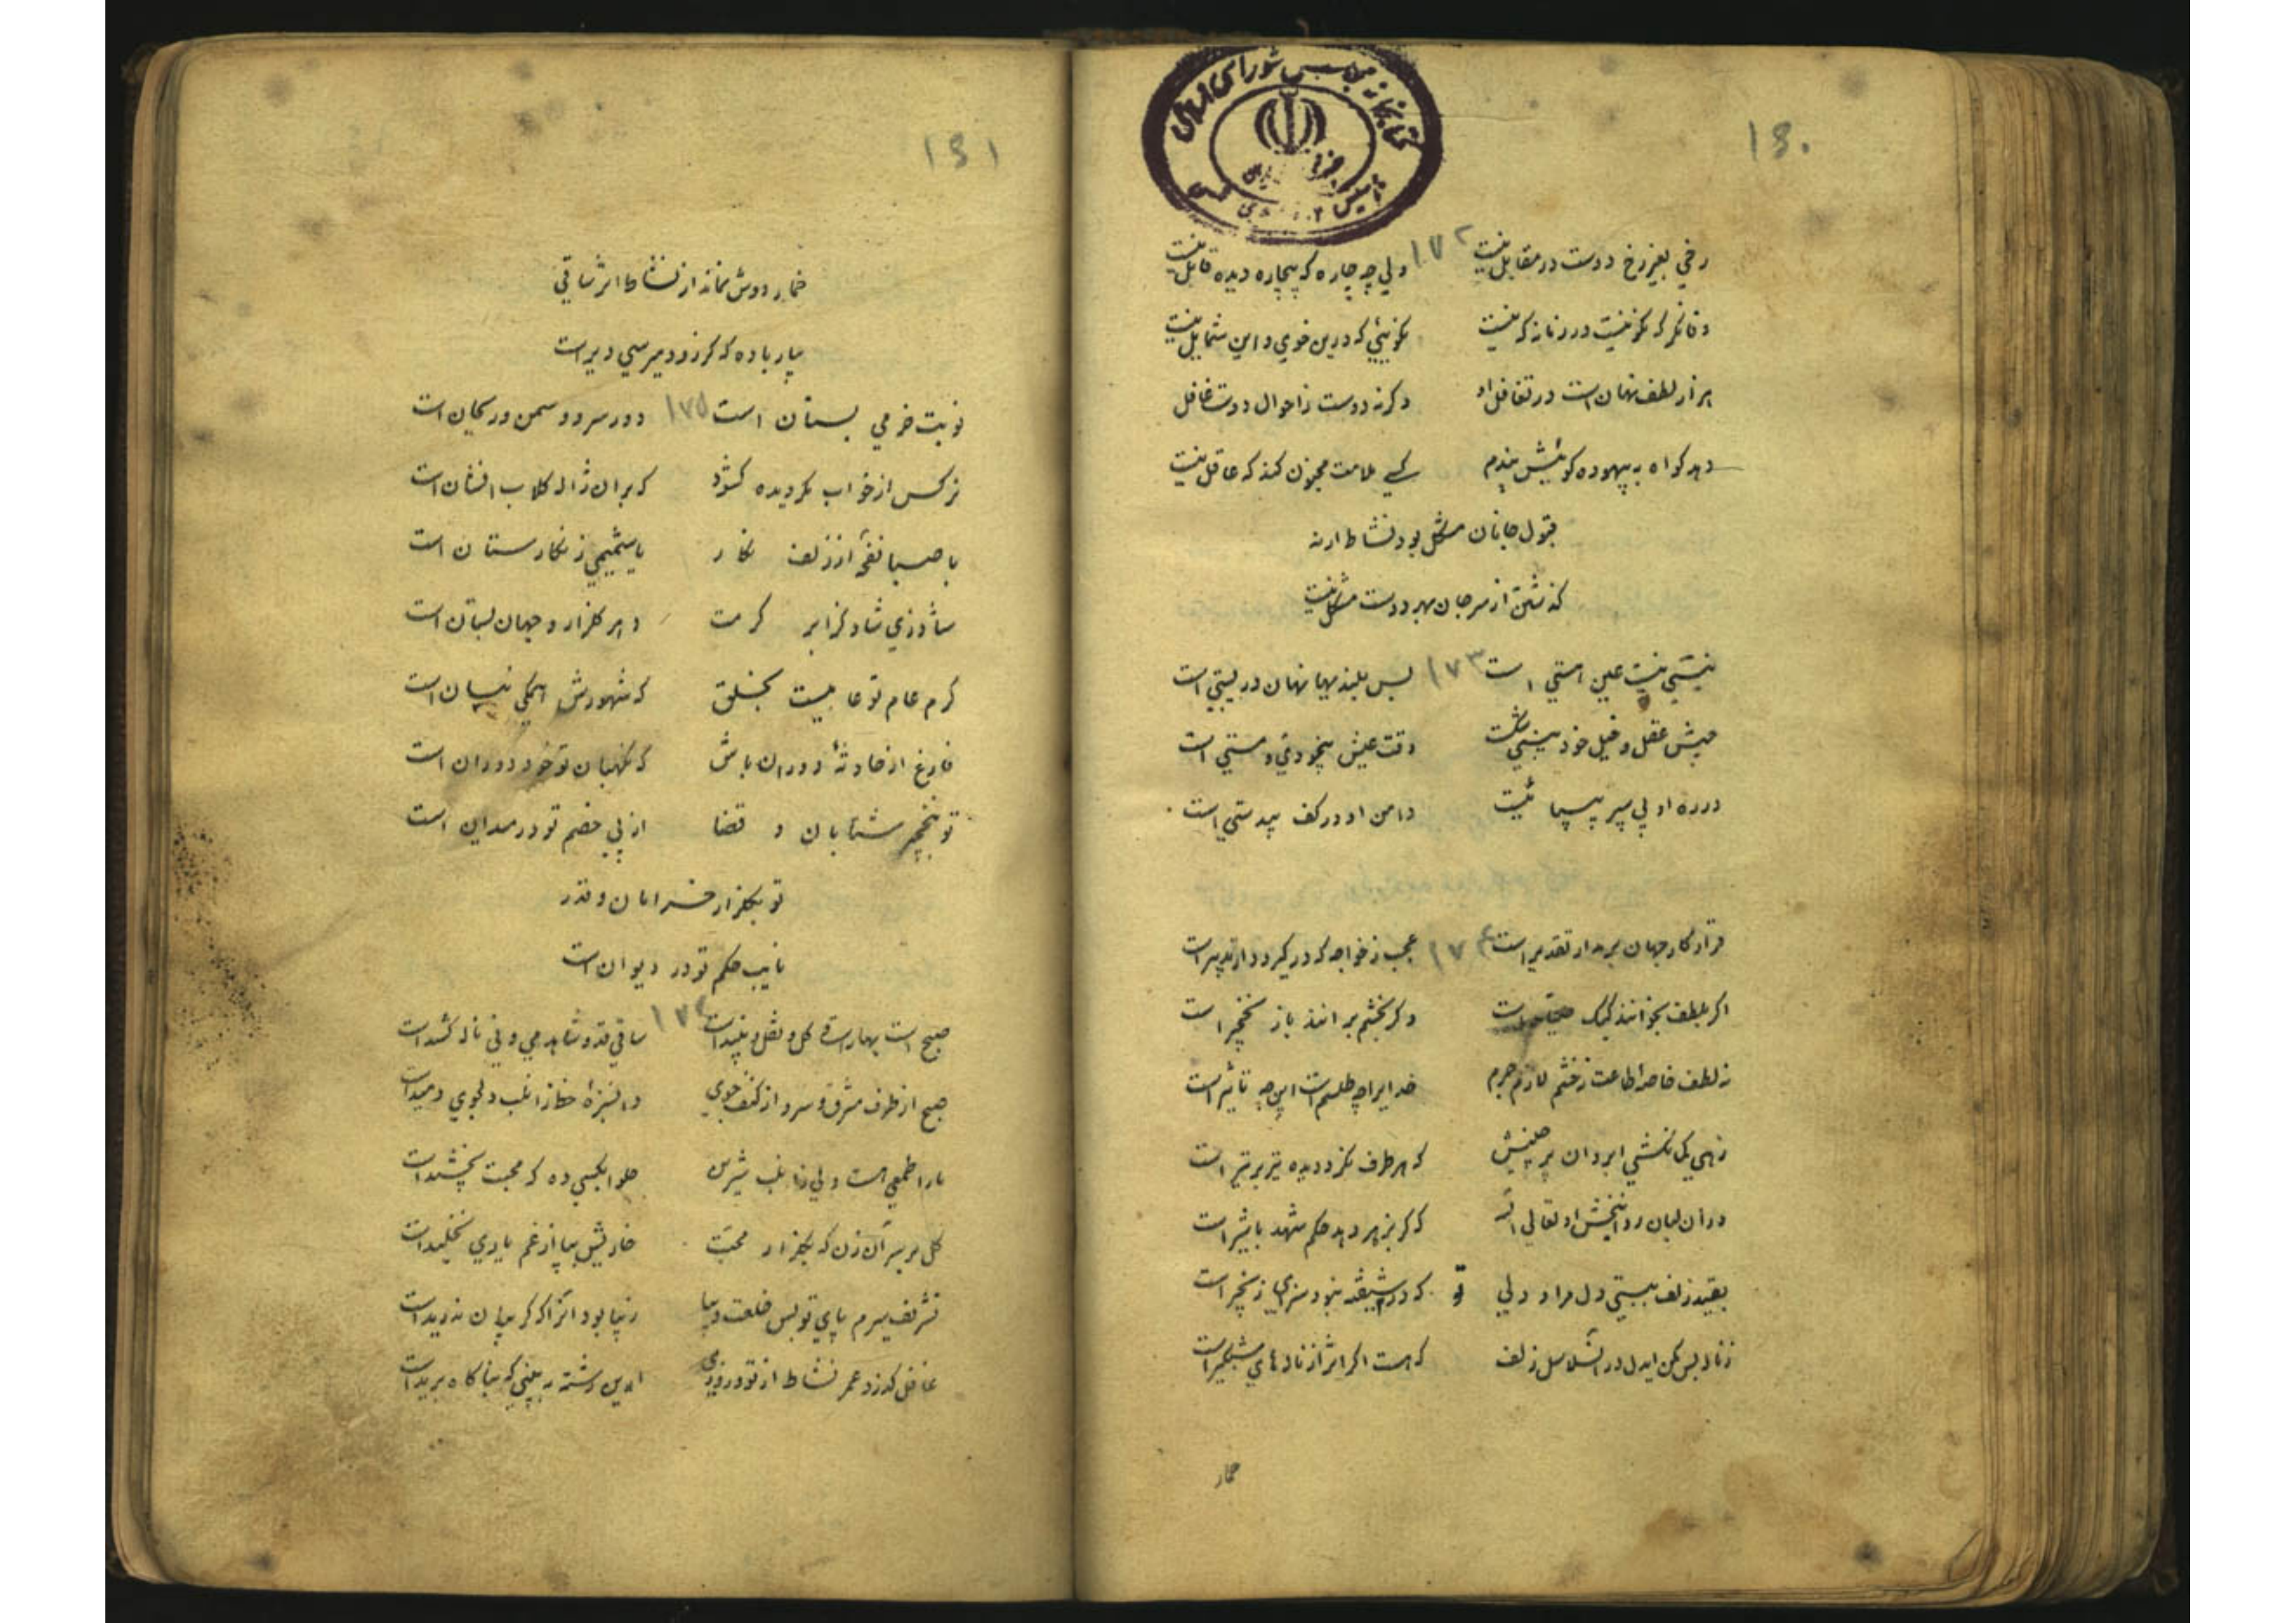 ۱۳۰
کتابخانه مجلس شورای اسلامی
رخی بغیر رخ دوست در مقابل نیست ۱۷۲ ولی چه چاره که بیچاره دیده قابل نیست
وفا نگر که نکو نیست در زمانه که نیست نکوئیی که درین خوی و این شمایل نیست
هزار لطف نهان است در تغافل او وگرنه دوست ز احوال دوست غافل
دهد گواه به بیهوده گوئیش پندم کسی ملامت مجنون کند که عاقل نیست
قبول جانان مشکل بود نشاط ارنه
گذشتن از سر جان بهر دوست مشکل نیست
نیستی نیست عین هستی است ۱۷۳ بس بلندیها نهان در پستی است
جیش عقل و خیل خودبینی شکست وقت عیش بیخودی و مستی است
در ره او پی سپر بی پا نیست دامن او در کف بیدستی است
قرار کار جهان بر مدار تقدیر است ۱۷۴ عجب ز خواجه که در گیرودار تدبیر است
اگر بلطف بخوانند کبک است وگر بخشم برانند باز نخجیر است
نه لطف خاصه اطاعت نه خشم لازم جرم خدایرا چه طلسم است این چه تأثیر است
زهی کمانکشی ابروان پر چینش که هر طرف نگرد دیده تیر بر تیر است
در آن لبان روانبخش او تعالی الله که گر بزهر دهد حکم شهد با شیر است
بقید زلف ببستی دل مرا و ولی که در شیفته نبود سزای زنجیر است
ز ناله بس مکن ایدل در آن سلاسل زلف که هست اگر اثر از ناله های شبگیر است
خمار
۱۳۱
خمار دوش نماند از نشاط اثر ساقی
بیار باده که گر زود میرسی دیر است
نوبت خرمی بستان است ۱۷۵ دور سرو و سمن و ریحان است
نرگس از خواب مگر دیده گشود که بر آن ژاله گلاب افشان است
با صبا نفخه از زلف نگار یا شمیمی ز نگارستان است
شاد زی شاد کز ابر کرمت دهر گلزار و جهان بستان است
کرم عام تو عامیست بخلق که شهورش همگی نیسان است
فارغ از حادثهٔ دوران باش که نگهبان تو خود دوران است
تو بنخجیر شتابان و قضا از پی خصم تو در میدان است
تو بگلزار خرامان و قدر
نایب حکم تو در دیوان است
صبح است بهار است گل و نقل و نبید است ۱۷۶ ساقی قد و شاهد می و نی ناله کشید است
صبح از طرف مشرق و سرو از کنف جوی وان سبزهٔ خط زان لب دلجوی دمید است
ما را طمعی هست ولی زان لب شیرین حلوا بکسی ده که محبت بچشید است
گل بر سر آن زن که بگلزار محبت خاریش بپا از غم یاری نخلید است
تشریف سرم پای تو بس خلعت دیبا زیبا بود آنرا که گریبان ندرید است
غافل گذرد عمر نشاط از تو و روزی این رشته به بینی که بناگاه برید است